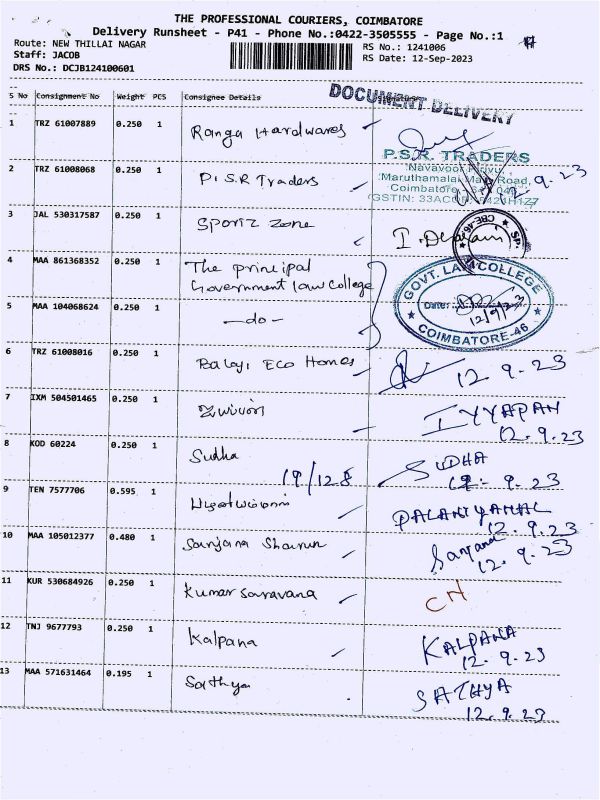 THE PROFESSIONAL COURIERS, COIMBATORE
Delivery Runsheet - P41 - Phone No.:0422-3505555 - Page No.:1
Route: NEW THILLAI NAGAR
RS No.: 1241006
Staff: JACOB
RS Date: 12-Sep-2023
DRS No.: DCJB124100601
S No Consignment No Weight PCS Consignee Details
DOCUMENT DELIVERY
1 TRZ 61007889 0.250 1 Ranga Hardwares
P.S.R. TRADERS
Navavoor Pirivu,
Maruthamalai Main Road,
Coimbatore
GSTIN:
12.9.23
2 TRZ 61008068 0.250 1 P.S.R Traders
3 JAL 530317587 0.250 1 Sportz Zone
4 MAA 861368352 0.250 1 The principal
Government law College
GOVT. LAW COLLEGE
Date:
12/9/23
COIMBATORE-46
5 MAA 104068624 0.250 1 —do—
6 TRZ 61008016 0.250 1 Balaji Eco Homes 12.9.23
7 IXM 504501465 0.250 1 IYYAPAN
12.9.23
8 KOD 60224 0.250 1 Sudha SUDHA
19/128 12.9.23
9 TEN 7577706 0.595 1 PALANIYAMAL
12.9.23
10 MAA 105012377 0.480 1 Sanjana Sanjana
12.9.23
11 KUR 530684926 0.250 1 Kumar Saravana CN
12 TNJ 9677793 0.250 1 Kalpana KALPANA
12.9.23
13 MAA 571631464 0.195 1 Sathya SATHYA
12.9.23